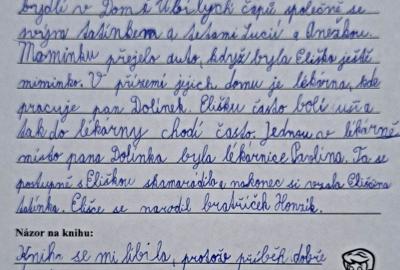 bydlí v Domě U bílých čápů společně se
svým tatínkem a tetami Lucií a Anežkou.
Maminku přejelo auto, když byla Eliška ještě
miminko. V přízemí jejich domu je lékárna, kde
pracuje pan Dolínek. Elišku často bolí uši a
tak do lékárny chodí často. Jednou v lékárně
místo pana Dolínka byla lékárnice Pavlína. Ta se
postupně s Eliškou skamarádila a nakonec si vzala Eliščina
tatínka. Elišce se narodil bratříček Honzík.
Názor na knihu:
Kniha se mi líbila, protože příběh dobře